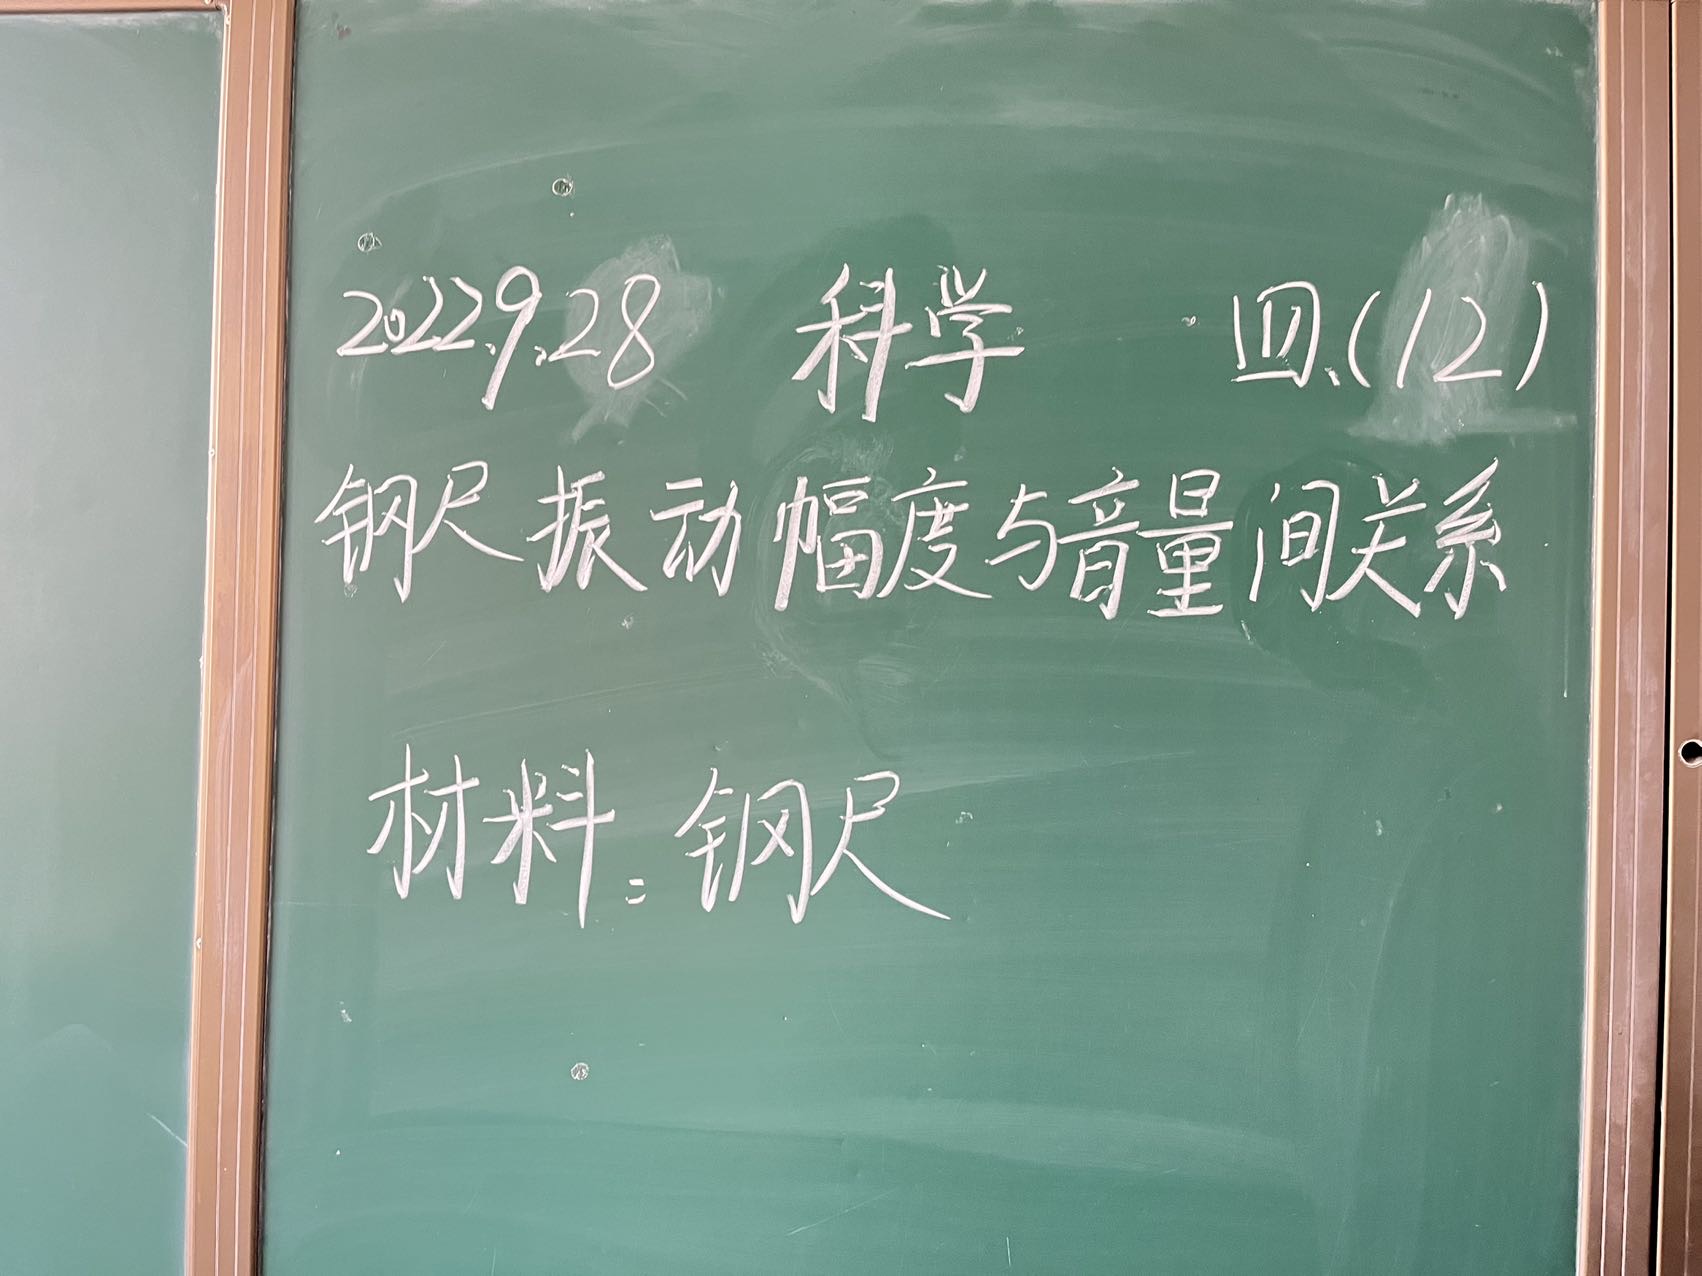 2022.9.28 科学 四.(12)
钢尺振动幅度与音量间关系
材料:钢尺